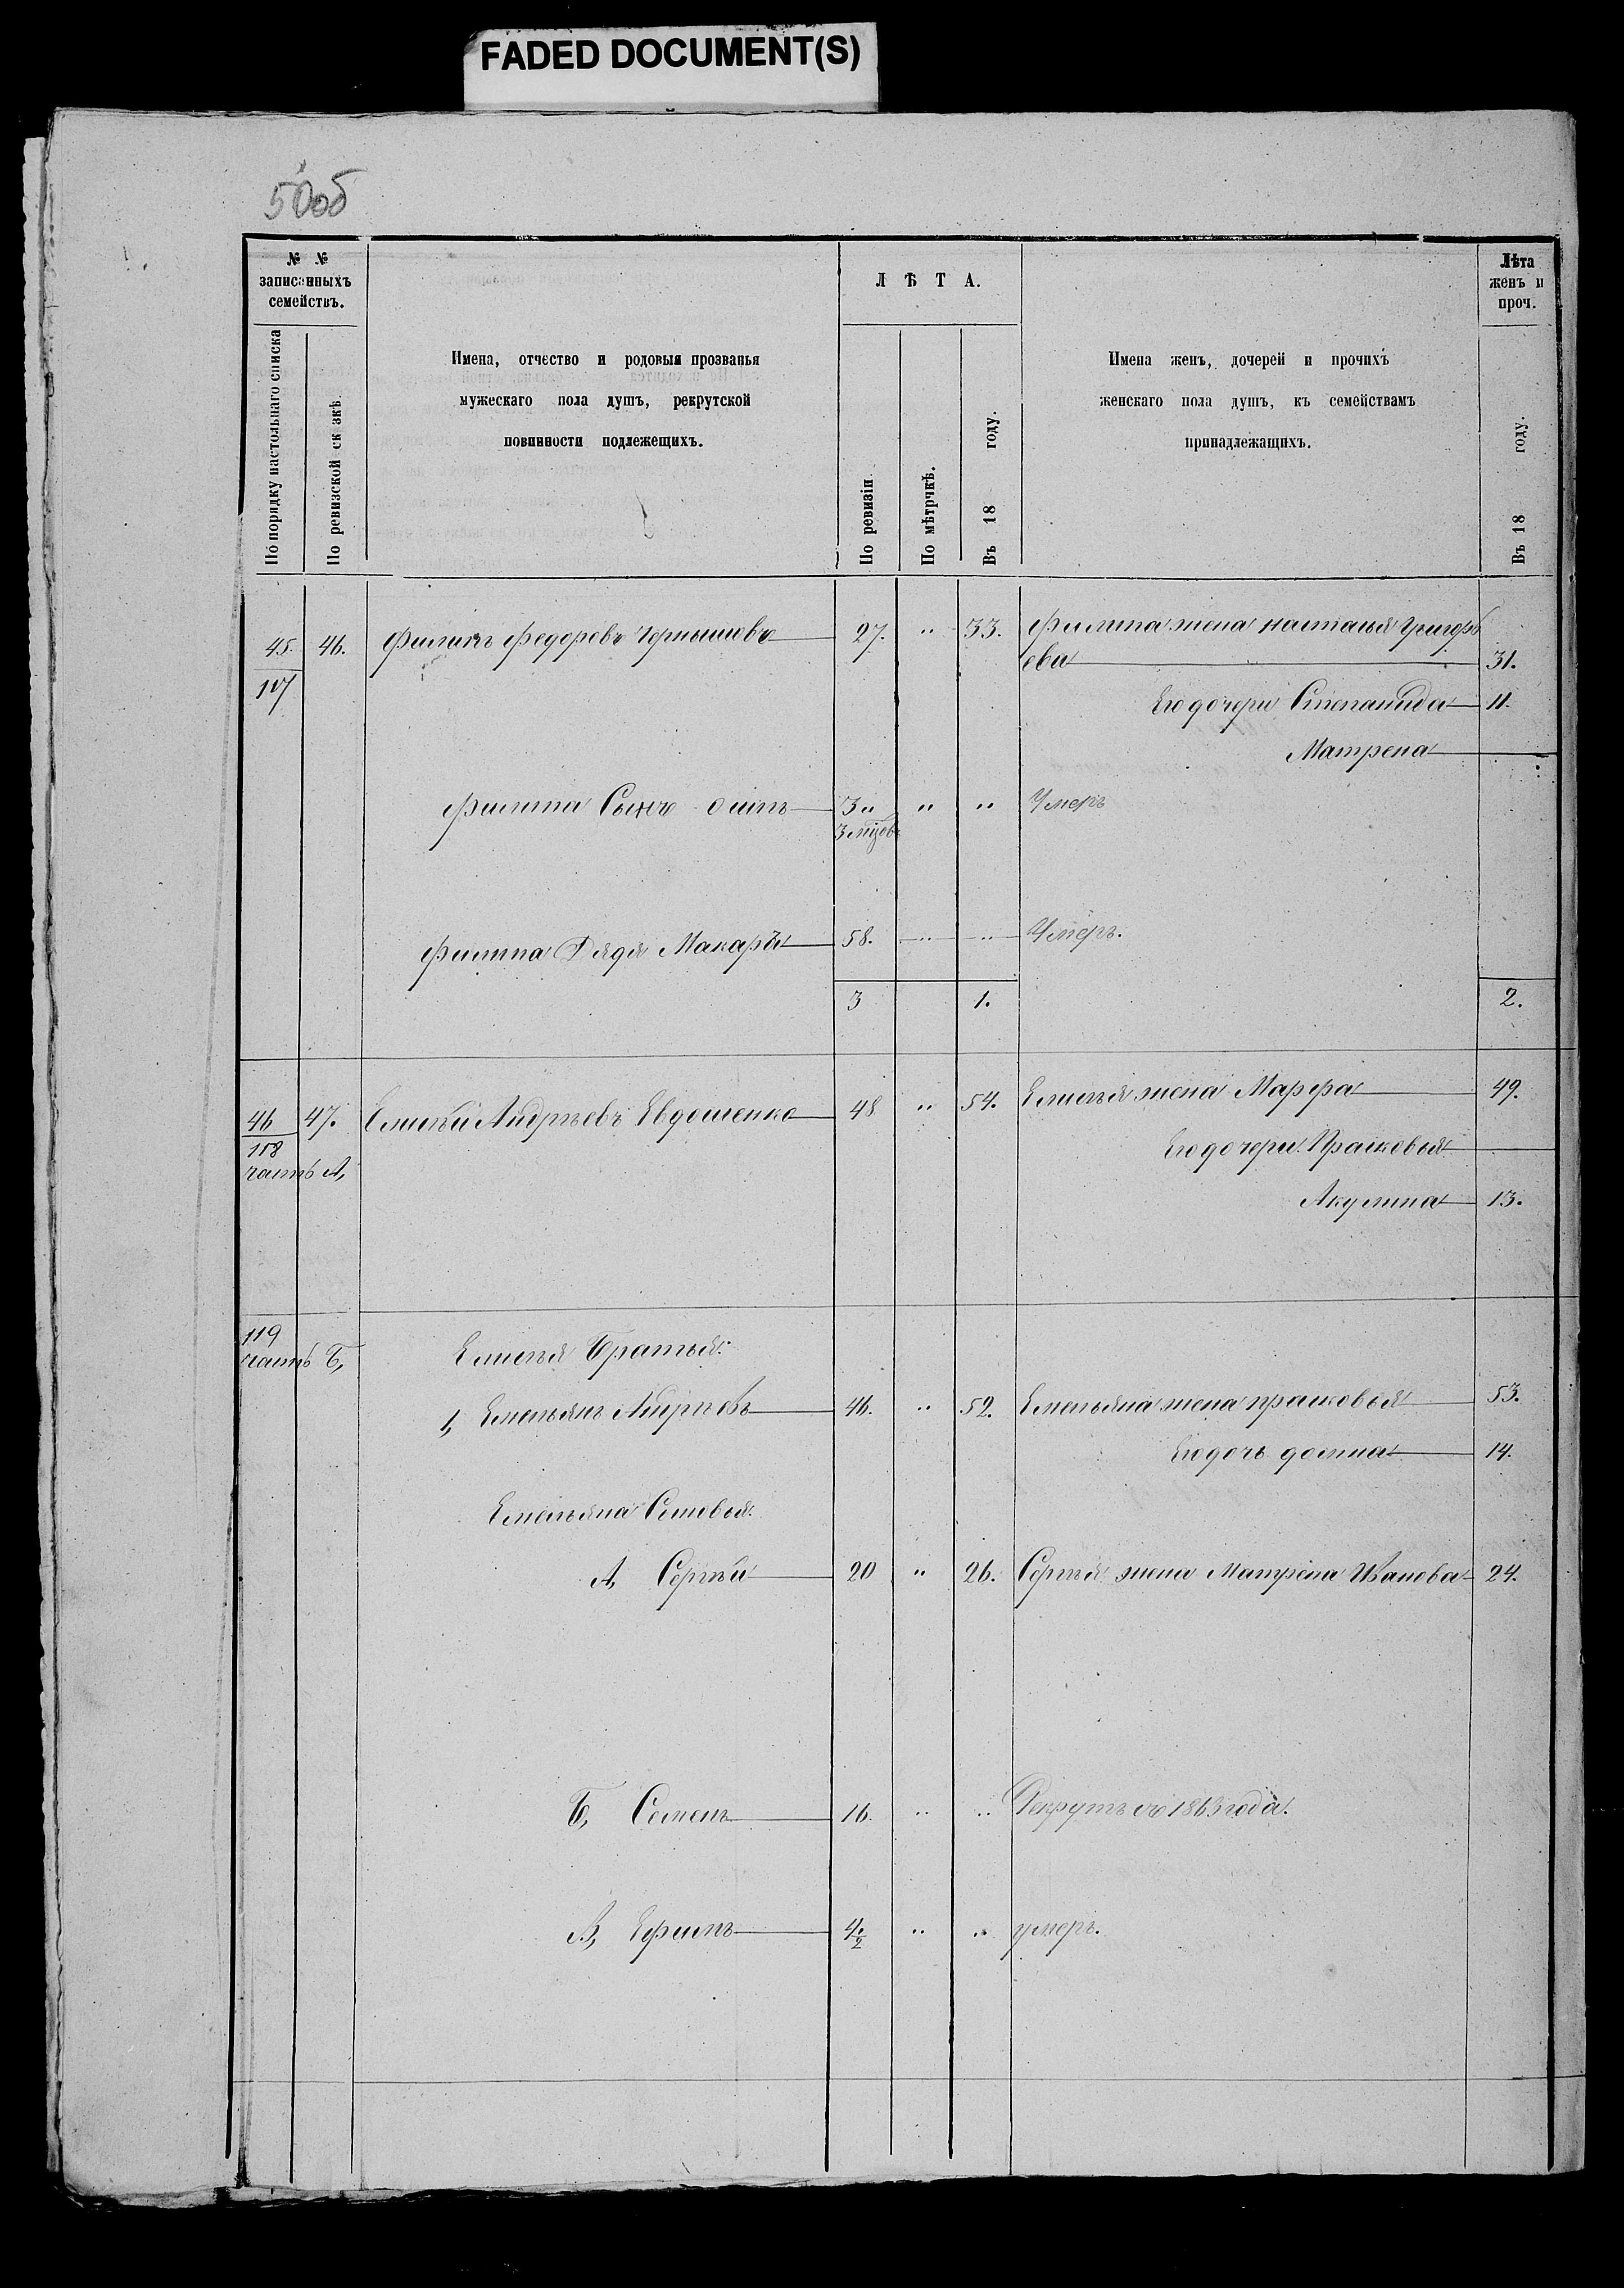 FADED DOCUMENT(S)
50об
№ №
записанныхъ
семействъ.
По порядку настольнаго списка
По ревизской ск зкѣ
Имена, отчество и родовыя прозванья
мужескаго пола душъ, рекрутской
повинности подлежещихъ.
ЛѢТА.
По ревизіи
По мѣтрчкѣ.
Въ 18 году.
Имена женъ, дочерей и прочихъ
женскаго пола душъ, къ семействамъ
принадлежащихъ.
Лѣта
женъ и
проч.
Въ 18 году.
45. 46. Филипъ Федоровъ Чернышовъ 27. " 33. Филипа жена Наталья Григорь
ева 31.
117
Его дочери Степанида 11.
Матрена
Филипа Сынъ 3 " " " Умеръ
3 мѣцов
Филипа Дядя Макаръ 58. " " Умеръ.
3 1. 2.
46 47. Елисѣй Андрѣевъ Евдошенко 48 " 54. Елисѣя жена Марфа 49.
118
часть А,
Его дочери Прасковья
Акулина 13.
119
часть Б, Елисѣя Братья:
1, Емельянъ Андрѣевъ 46. " 52. Емельяна жена прасковья 53.
Его дочь домна 14.
Емельяна Сыновья:
А, Сергѣй 20 " 26. Сергѣя жена Матрена Иванова 24.
Б, Семенъ 16. " " Рекрутъ съ 1863 года.
В, Ефимъ 4 1/2 " " умеръ.